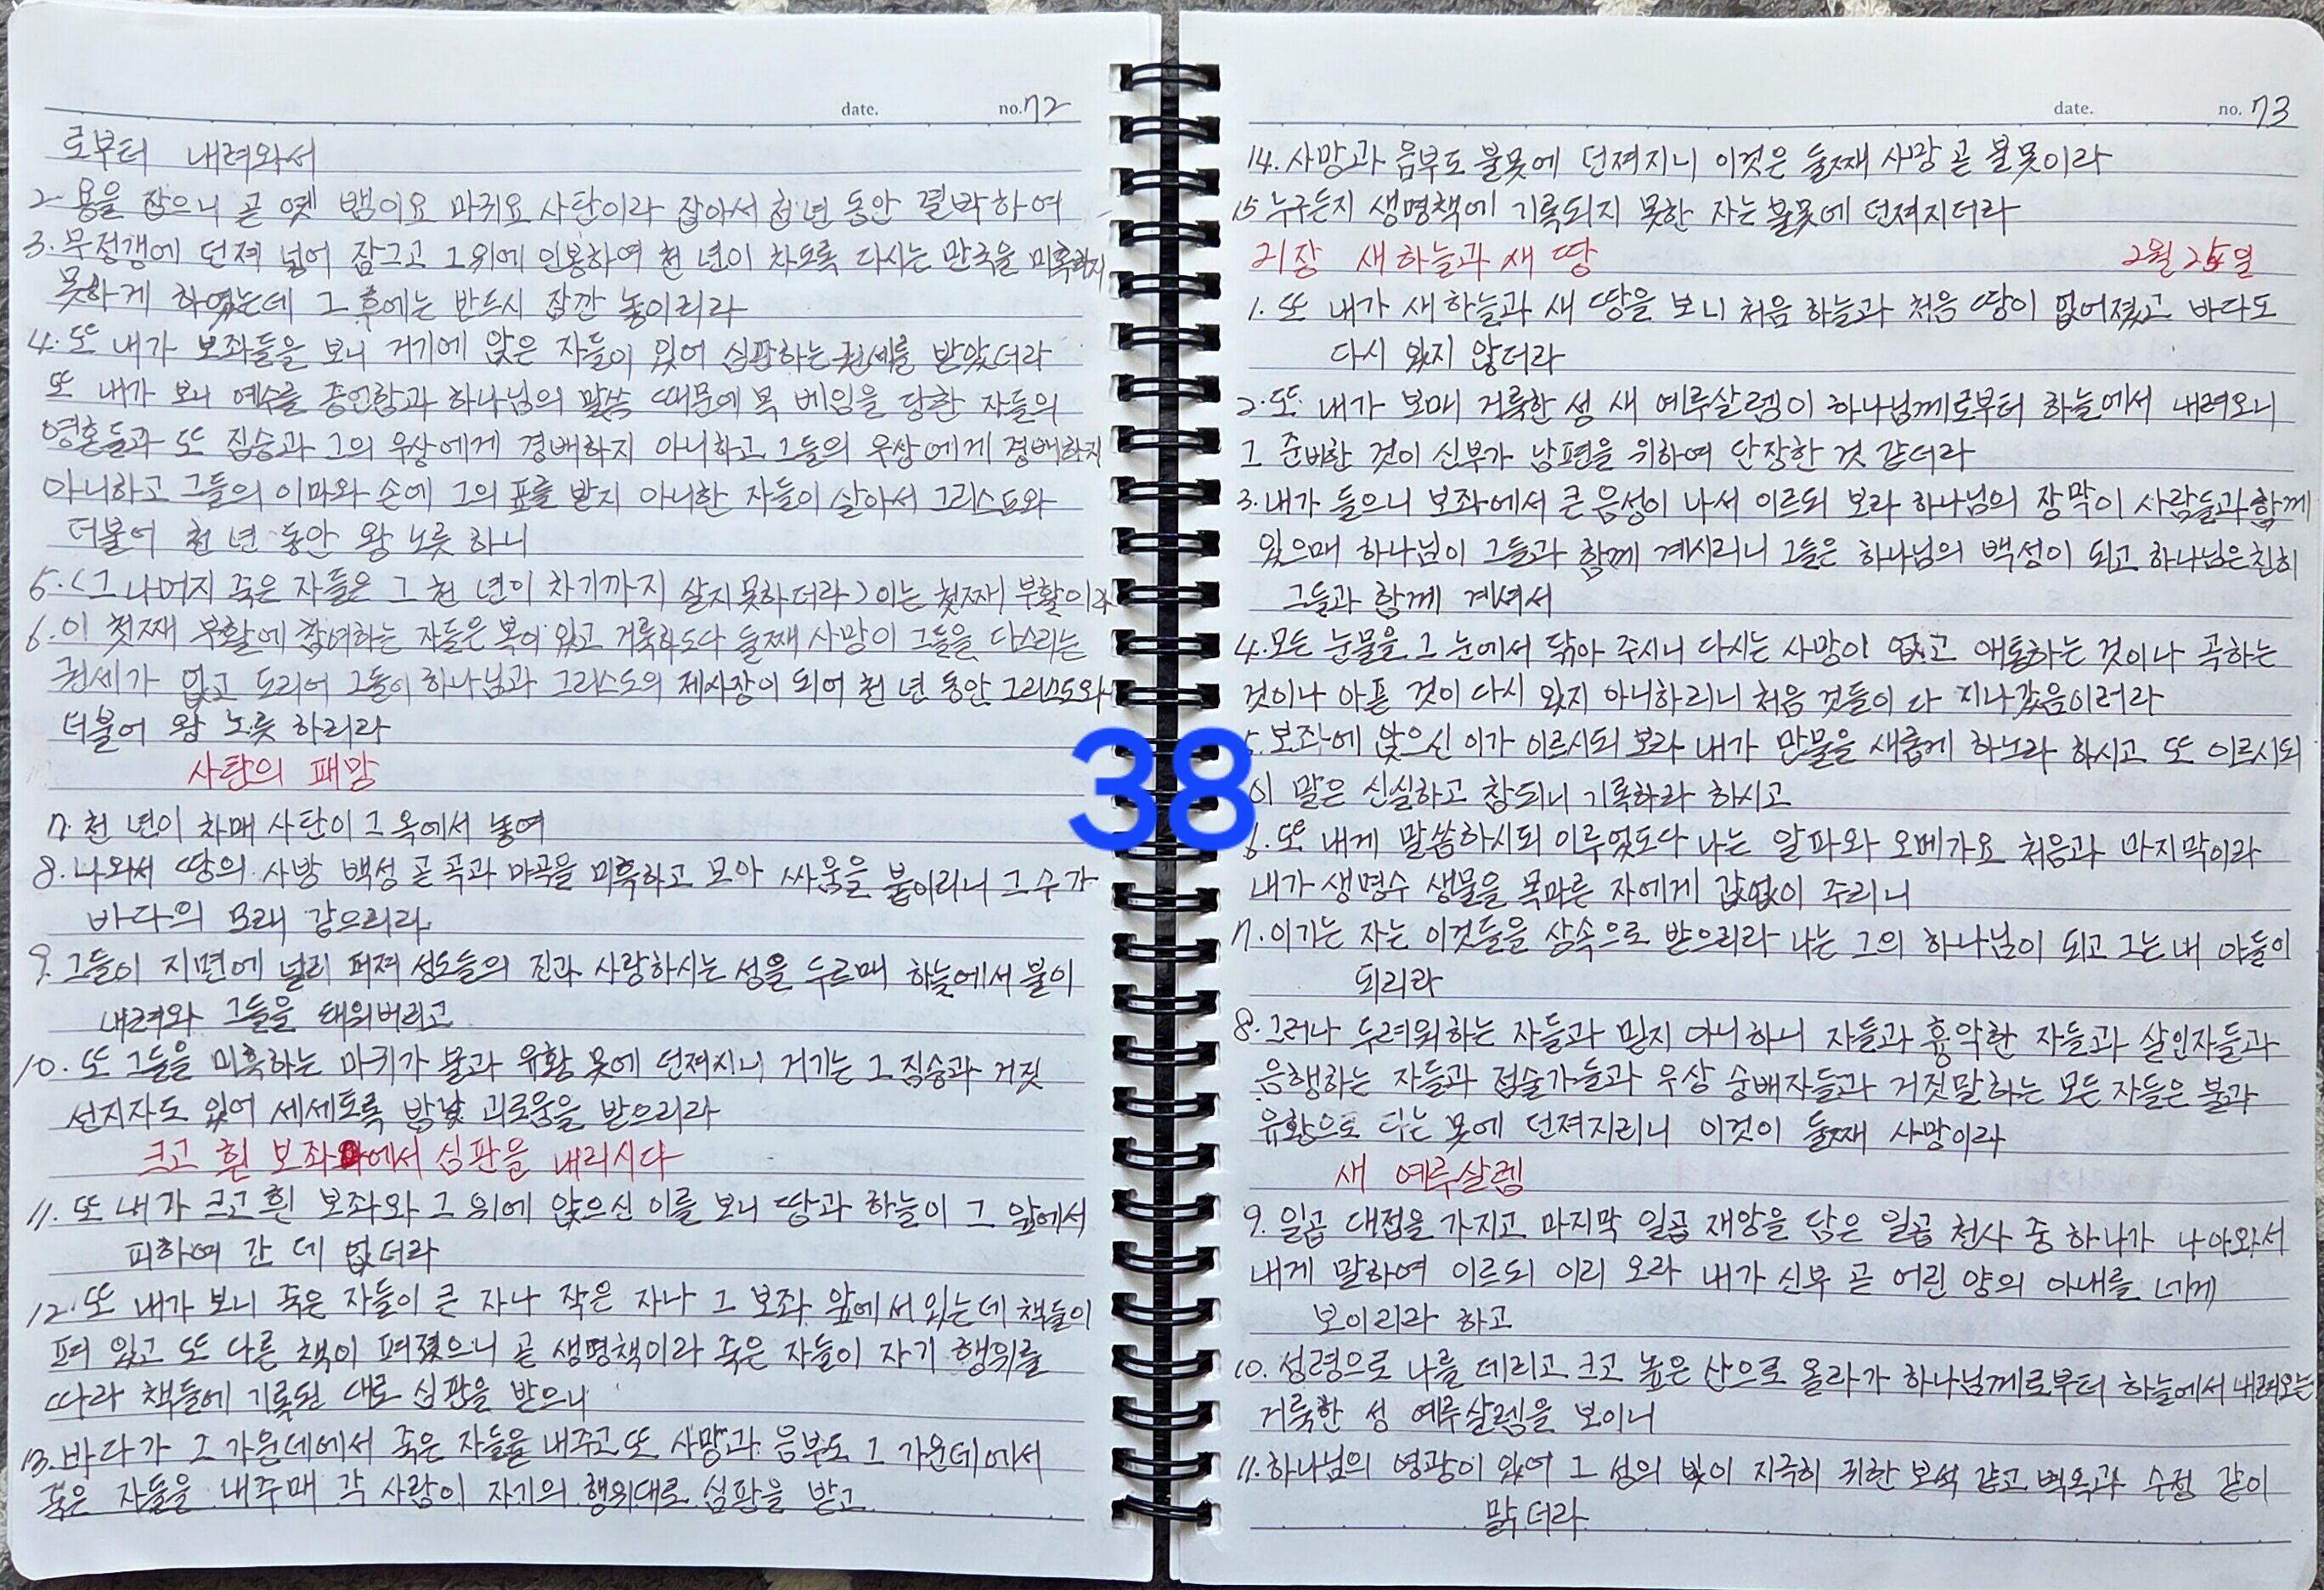 date. no. 72
로부터 내려와서
2. 용을 잡으니 곧 옛 뱀이요 마귀요 사탄이라 잡아서 천 년 동안 결박하여
3. 무정갱에 던져 넣어 잠그고 그 위에 인봉하여 천 년이 차도록 다시는 만국을 미혹하지
못하게 하였는데 그 후에는 반드시 잠깐 놓이리라
4. 또 내가 보좌들을 보니 거기에 앉은 자들이 있어 심판하는 권세를 받았더라
또 내가 보니 예수를 증언함과 하나님의 말씀 때문에 목 베임을 당한 자들의
영혼들과 또 짐승과 그의 우상에게 경배하지 아니하고 그들의 우상에게 경배하지
아니하고 그들의 이마와 손에 그의 표를 받지 아니한 자들이 살아서 그리스도와
더불어 천 년 동안 왕 노릇 하니
5. (그 나머지 죽은 자들은 그 천 년이 차기까지 살지 못하더라) 이는 첫째 부활이라
6. 이 첫째 부활에 참여하는 자들은 복이 있고 거룩하도다 둘째 사망이 그들을 다스리는
권세가 없고 도리어 그들이 하나님과 그리스도의 제사장이 되어 천 년 동안 그리스도와
더불어 왕 노릇 하리라
사탄의 패망
7. 천 년이 차매 사탄이 그 옥에서 놓여
8. 나와서 땅의 사방 백성 곧 곡과 마곡을 미혹하고 모아 싸움을 붙이리니 그 수가
바다의 모래 같으리라
9. 그들이 지면에 널리 퍼져 성도들의 진과 사랑하시는 성을 두르매 하늘에서 불이
내려와 그들을 태워버리고
10. 또 그들을 미혹하는 마귀가 불과 유황 못에 던져지니 거기는 그 짐승과 거짓
선지자도 있어 세세토록 밤낮 괴로움을 받으리라
크고 흰 보좌에서 심판을 내리시다
11. 또 내가 크고 흰 보좌와 그 위에 앉으신 이를 보니 땅과 하늘이 그 앞에서
피하여 간 데 없더라
12. 또 내가 보니 죽은 자들이 큰 자나 작은 자나 그 보좌 앞에 서 있는데 책들이
펴 있고 또 다른 책이 펴졌으니 곧 생명책이라 죽은 자들이 자기 행위를
따라 책들에 기록된 대로 심판을 받으니
13. 바다가 그 가운데에서 죽은 자들을 내주고 또 사망과 음부도 그 가운데에서
죽은 자들을 내주매 각 사람이 자기의 행위대로 심판을 받고
38
date. no. 73
14. 사망과 음부도 불못에 던져지니 이것은 둘째 사망 곧 불못이라
15 누구든지 생명책에 기록되지 못한 자는 불못에 던져지더라
21장 새 하늘과 새 땅 2월 25일
1. 또 내가 새 하늘과 새 땅을 보니 처음 하늘과 처음 땅이 없어졌고 바다도
다시 있지 않더라
2. 또 내가 보매 거룩한 성 새 예루살렘이 하나님께로부터 하늘에서 내려오니
그 준비한 것이 신부가 남편을 위하여 단장한 것 같더라
3. 내가 들으니 보좌에서 큰 음성이 나서 이르되 보라 하나님의 장막이 사람들과 함께
있으매 하나님이 그들과 함께 계시리니 그들은 하나님의 백성이 되고 하나님은 친히
그들과 함께 계셔서
4. 모든 눈물을 그 눈에서 닦아 주시니 다시는 사망이 없고 애통하는 것이나 곡하는
것이나 아픈 것이 다시 있지 아니하리니 처음 것들이 다 지나갔음이러라
5. 보좌에 앉으신 이가 이르시되 보라 내가 만물을 새롭게 하노라 하시고 또 이르시되
이 말은 신실하고 참되니 기록하라 하시고
6. 또 내게 말씀하시되 이루었도다 나는 알파와 오메가요 처음과 마지막이라
내가 생명수 샘물을 목마른 자에게 값없이 주리니
7. 이기는 자는 이것들을 상속으로 받으리라 나는 그의 하나님이 되고 그는 내 아들이
되리라
8. 그러나 두려워하는 자들과 믿지 아니하니 자들과 흉악한 자들과 살인자들과
음행하는 자들과 점술가들과 우상 숭배자들과 거짓말하는 모든 자들은 불과
유황으로 타는 못에 던져지리니 이것이 둘째 사망이라
새 예루살렘
9. 일곱 대접을 가지고 마지막 일곱 재앙을 담은 일곱 천사 중 하나가 나아와서
내게 말하여 이르되 이리 오라 내가 신부 곧 어린 양의 아내를 네게
보이리라 하고
10. 성령으로 나를 데리고 크고 높은 산으로 올라가 하나님께로부터 하늘에서 내려오는
거룩한 성 예루살렘을 보이니
11. 하나님의 영광이 있어 그 성의 빛이 지극히 귀한 보석 같고 벽옥과 수정 같이
맑더라